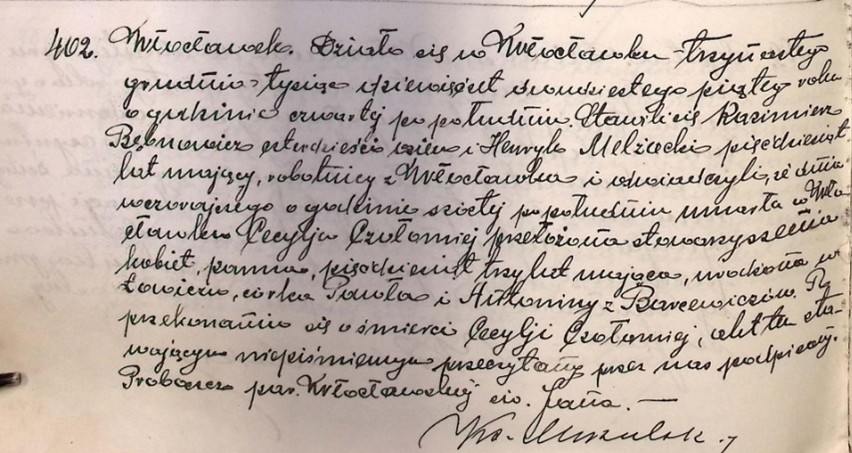 402. Włocławek. Działo się w Włocławku trzynastego
grudnia tysiąc dziewięćset dwudziestego piątego roku
o godzinie czwartej po południu. Stawili się Kazimierz
czterdzieści siedm i Henryk Melżacki pięćdziesiąt
lat mający, robotnicy z Włocławka i oświadczyli, że dnia
wczorajszego o godzinie szóstej po południu umarła w Wło
cławku Cecylja Czołomiej przełożona stowarzyszenia
kobiet, panna, pięćdziesiąt trzy lat mająca, urodzona w
Łowiczu, córka Pawła i Antoniny z Barcewiczów. Po
przekonaniu się o śmierci Cecylji Czołomiej, akt ten sta-
wającym niepiśmiennym przeczytany przez nas podpisany.
Proboszcz par. Włocławskiej św. Jana. —
Ks.